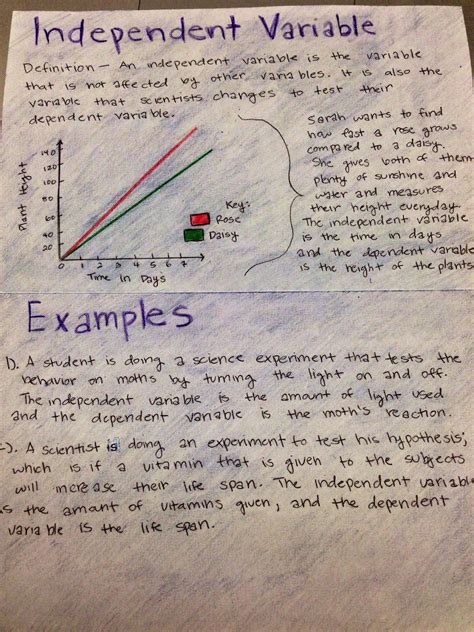 Independent Variable
Definition - An independent variable is the variable
that is not affected by other variables. It is also the
variable that scientists changes to test their
dependent variable.
Plant Height
140
120
100
80
60
40
20
0 1 2 3 4 5 6 7
Time in Days
Key:
Rose
Daisy
Sarah wants to find
how fast a rose grows
compared to a daisy.
She gives both of them
plenty of sunshine and
water and measures
their height everyday.
The independent variable
is the time in days
and the dependent variable
is the height of the plants
Examples
1). A student is doing a science experiment that tests the
behavior on moths by turning the light on and off.
The independent variable is the amount of light used
and the dependent variable is the moth's reaction.
). A scientist is doing an experiment to test his hypothesis,
which is if a vitamin that is given to the subjects
will increase their life span. The independent variable
is the amount of vitamins given, and the dependent
variable is the life span.